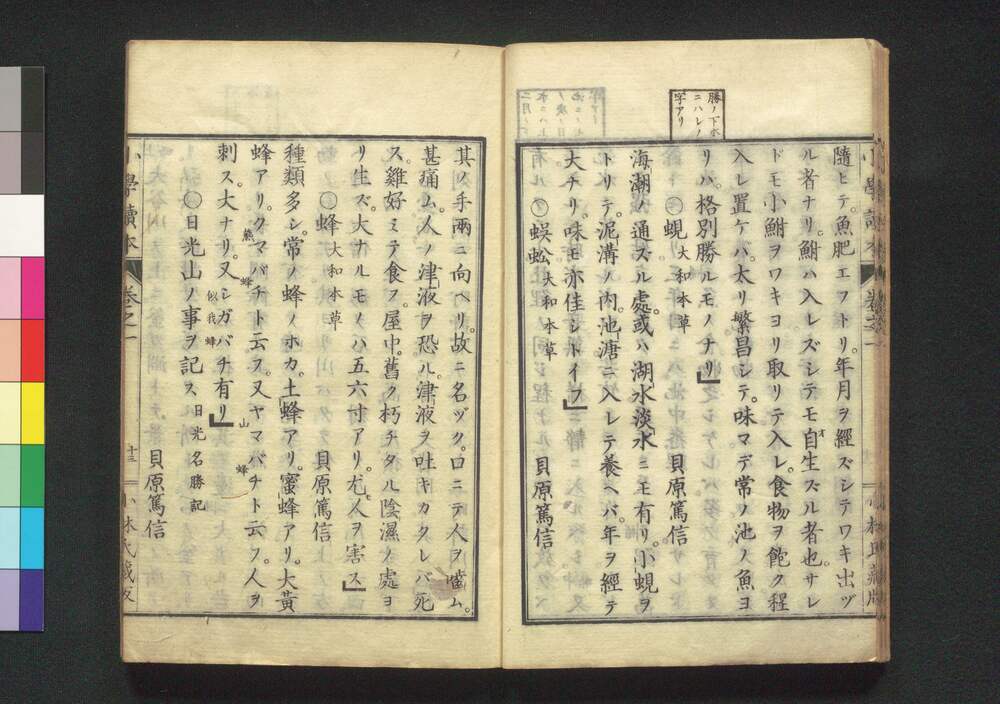 勝ノ下ニ
ニハレノ
字アリ
隨ヒテ魚肥エフトリ。年月ヲ經ズシテワキ出ヅ
ル者ナリ。鮒ハ入レズシテモ自生ズル者也。サレ
ドモ小鮒ヲワキヨリ取リテ入レ。食物ヲ飽ク程
入レ置ケバ。太リ繁昌シテ。味マデ常ノ池ノ魚ヨ
リハ。格別勝ルモノナリ』
○蜆 大和本草 貝原篤信
海潮ノ通ズル處。或ハ湖水淡水ニモ有リ。小蜆ヲ
トリテ。泥溝ノ内。池溏ニ入レテ養ヘバ。年ヲ經テ
大ナリ。味モ亦佳シトイフ』
○蜈蚣 大和本草 貝原篤信
其ノ手兩ニ向ヘリ。故ニ名ヅク。口ニテ人ヲ嚙ム。
甚痛ム。人ノ津液ヲ恐ル。津液ヲ吐キカクレバ死
ス。雞好ミテ食フ。屋中。舊ク朽チタル陰濕ノ處ヨ
リ生ズ。大ナルモノハ五六寸アリ。尤人ヲ害ス』
○蜂 大和本草 貝原篤信
種類多シ。常ノ蜂ノホカ。土蜂アリ。蜜蜂アリ。大黃
蜂アリ。クマバチト云フ。又ヤマバチト云フ。人ヲ
熊 蜂 山 蜂
刺ス。大ナリ。又シガバチ有リ』
似我蜂
○日光山ノ事ヲ記ス 日光名勝記 貝原篤信
小學讀本 卷之一 十三 小林氏藏反